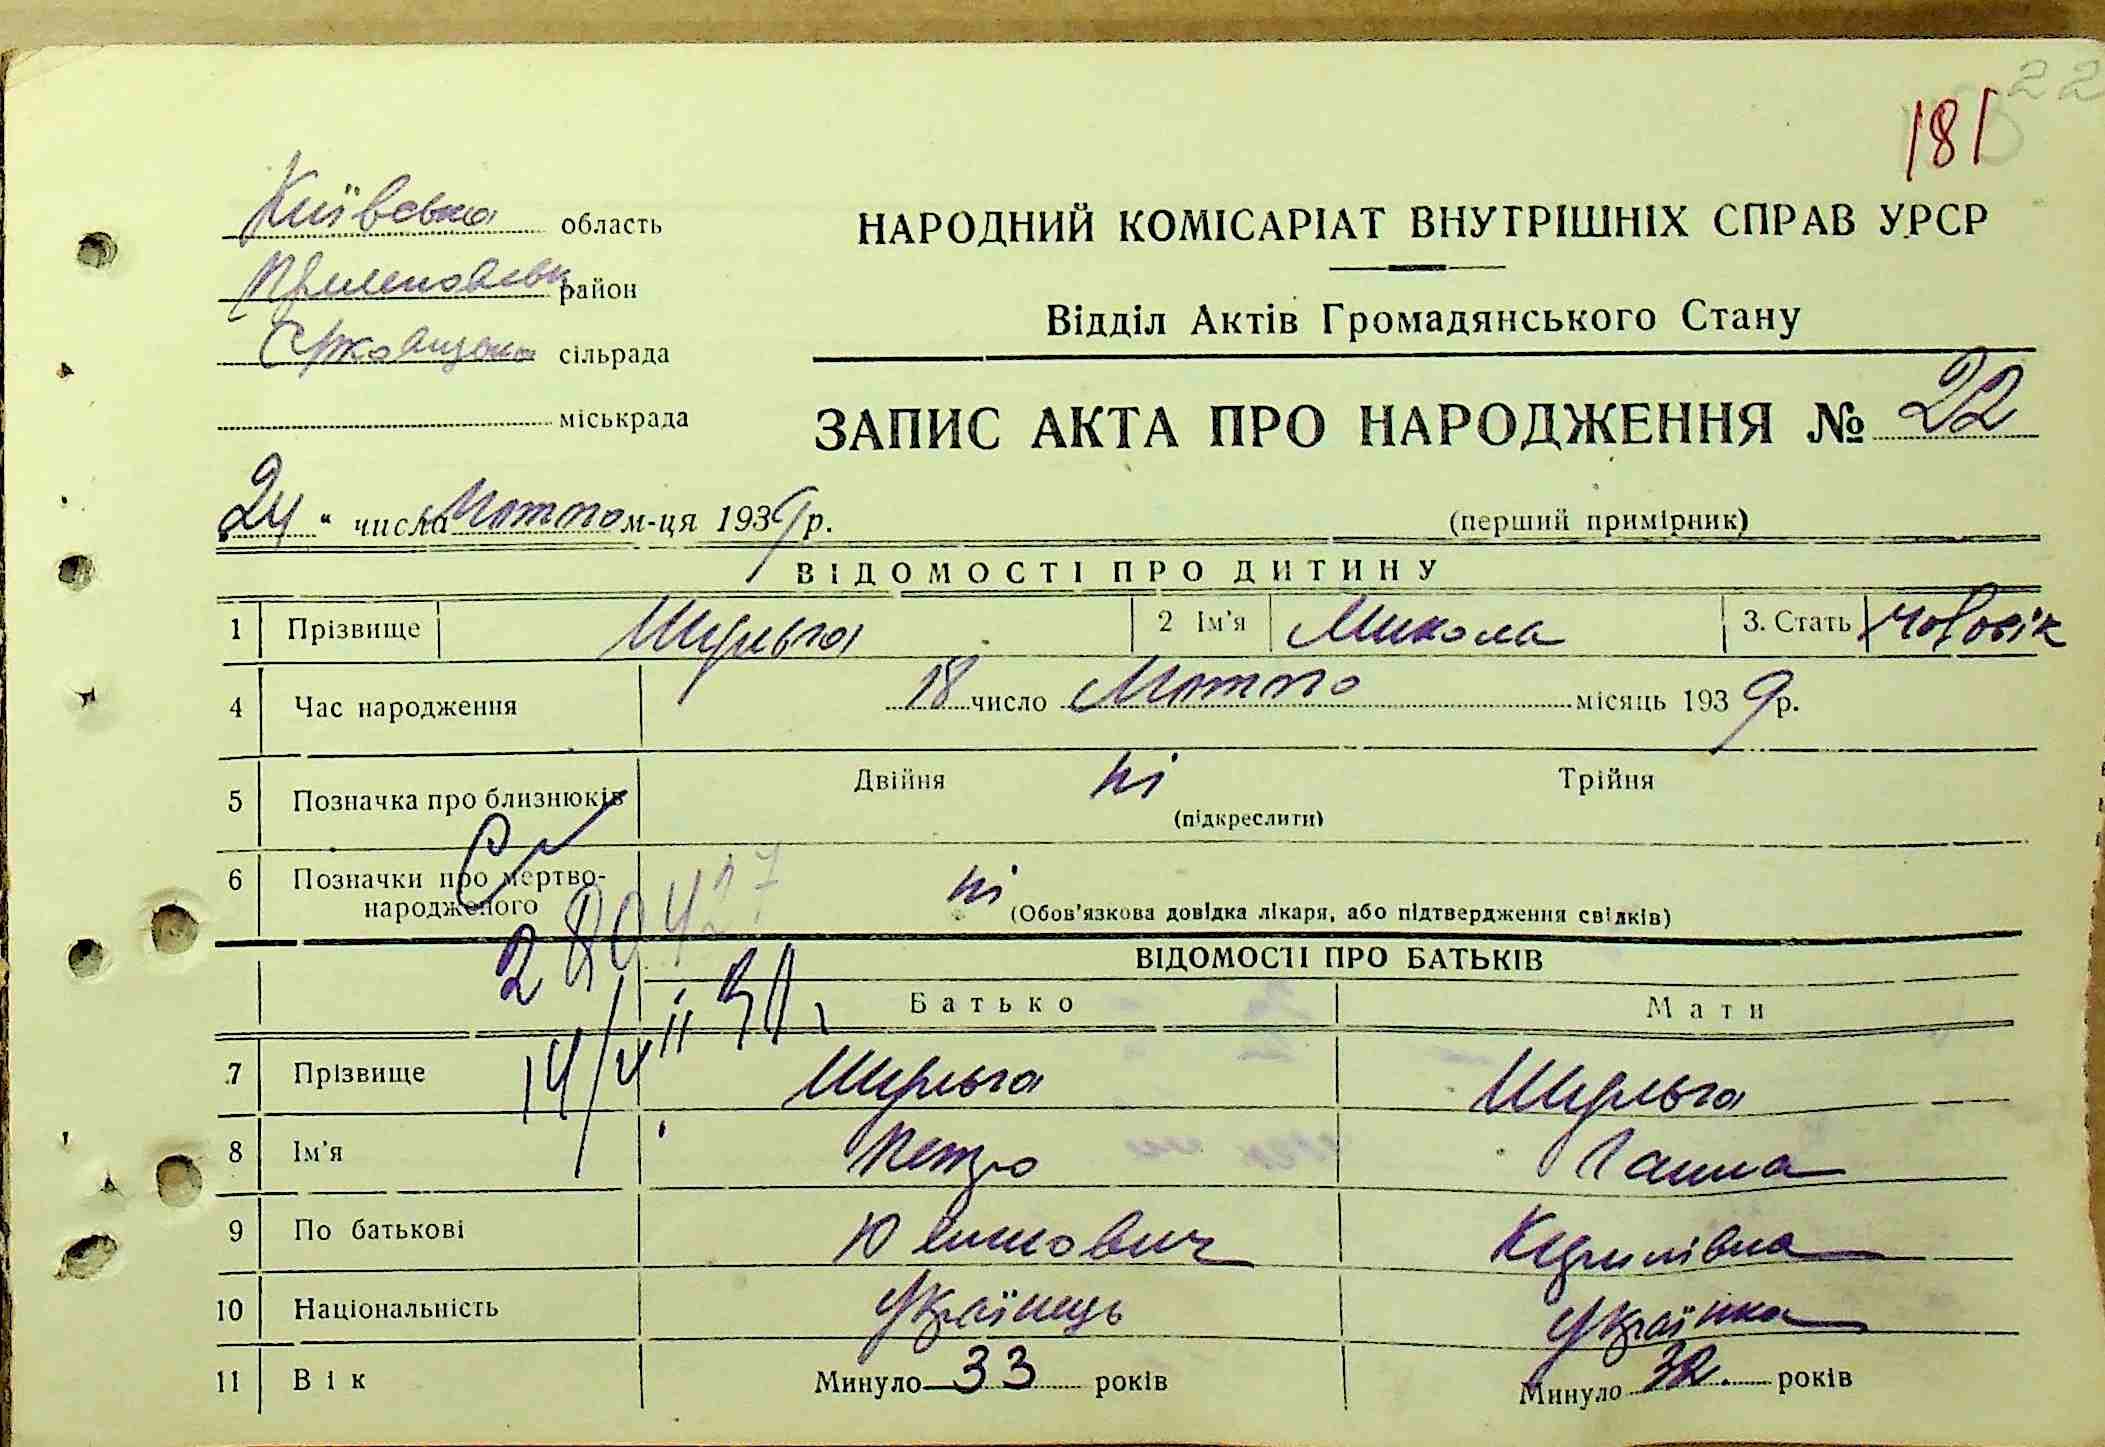 22
181
Київська область
район
сільрада
міськрада
НАРОДНИЙ КОМІСАРІАТ ВНУТРІШНІХ СПРАВ УРСР
Відділ Актів Громадянського Стану
ЗАПИС АКТА ПРО НАРОДЖЕННЯ № 22
24 " числа Лютого м-ця 1939 р.
(перший примірник)
ВІДОМОСТІ ПРО ДИТИНУ
1 Прізвище Шульга 2 Ім'я Микола 3. Стать чоловік
4 Час народження 18 число Лютого місяць 1939 р.
5 Позначка про близнюків Двійня ні Трійня
(підкреслити)
6 Позначки про мертво-
народженого ні (Обов'язкова довідка лікаря, або підтвердження свідків)
ВІДОМОСТІ ПРО БАТЬКІВ
Батько Мати
7 Прізвище Шульга Шульга
8 Ім'я Петро Ганна
9 По батькові Юхимович Кирилівна
10 Національність Українець Українка
11 Вік Минуло 33 років Минуло 32 років